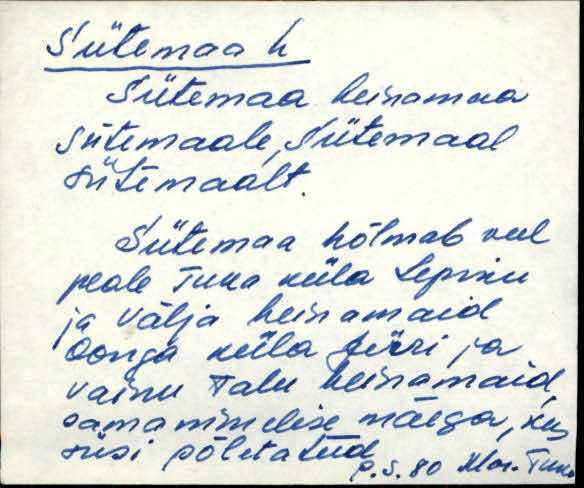 Sütemaa h
Sütemaa heinamaa
Sütemaale, Sütemaal
Sütemaalt.
Sütemaa hõlmab veel
peale Tuka küla Lepiku
ja Välja heinamaid
Oonga küla Jüri ja
Vainu talu heinamaid,
samanimelise mäega, kus
süsi põletatud
p.s. 80 Mar. Tuka